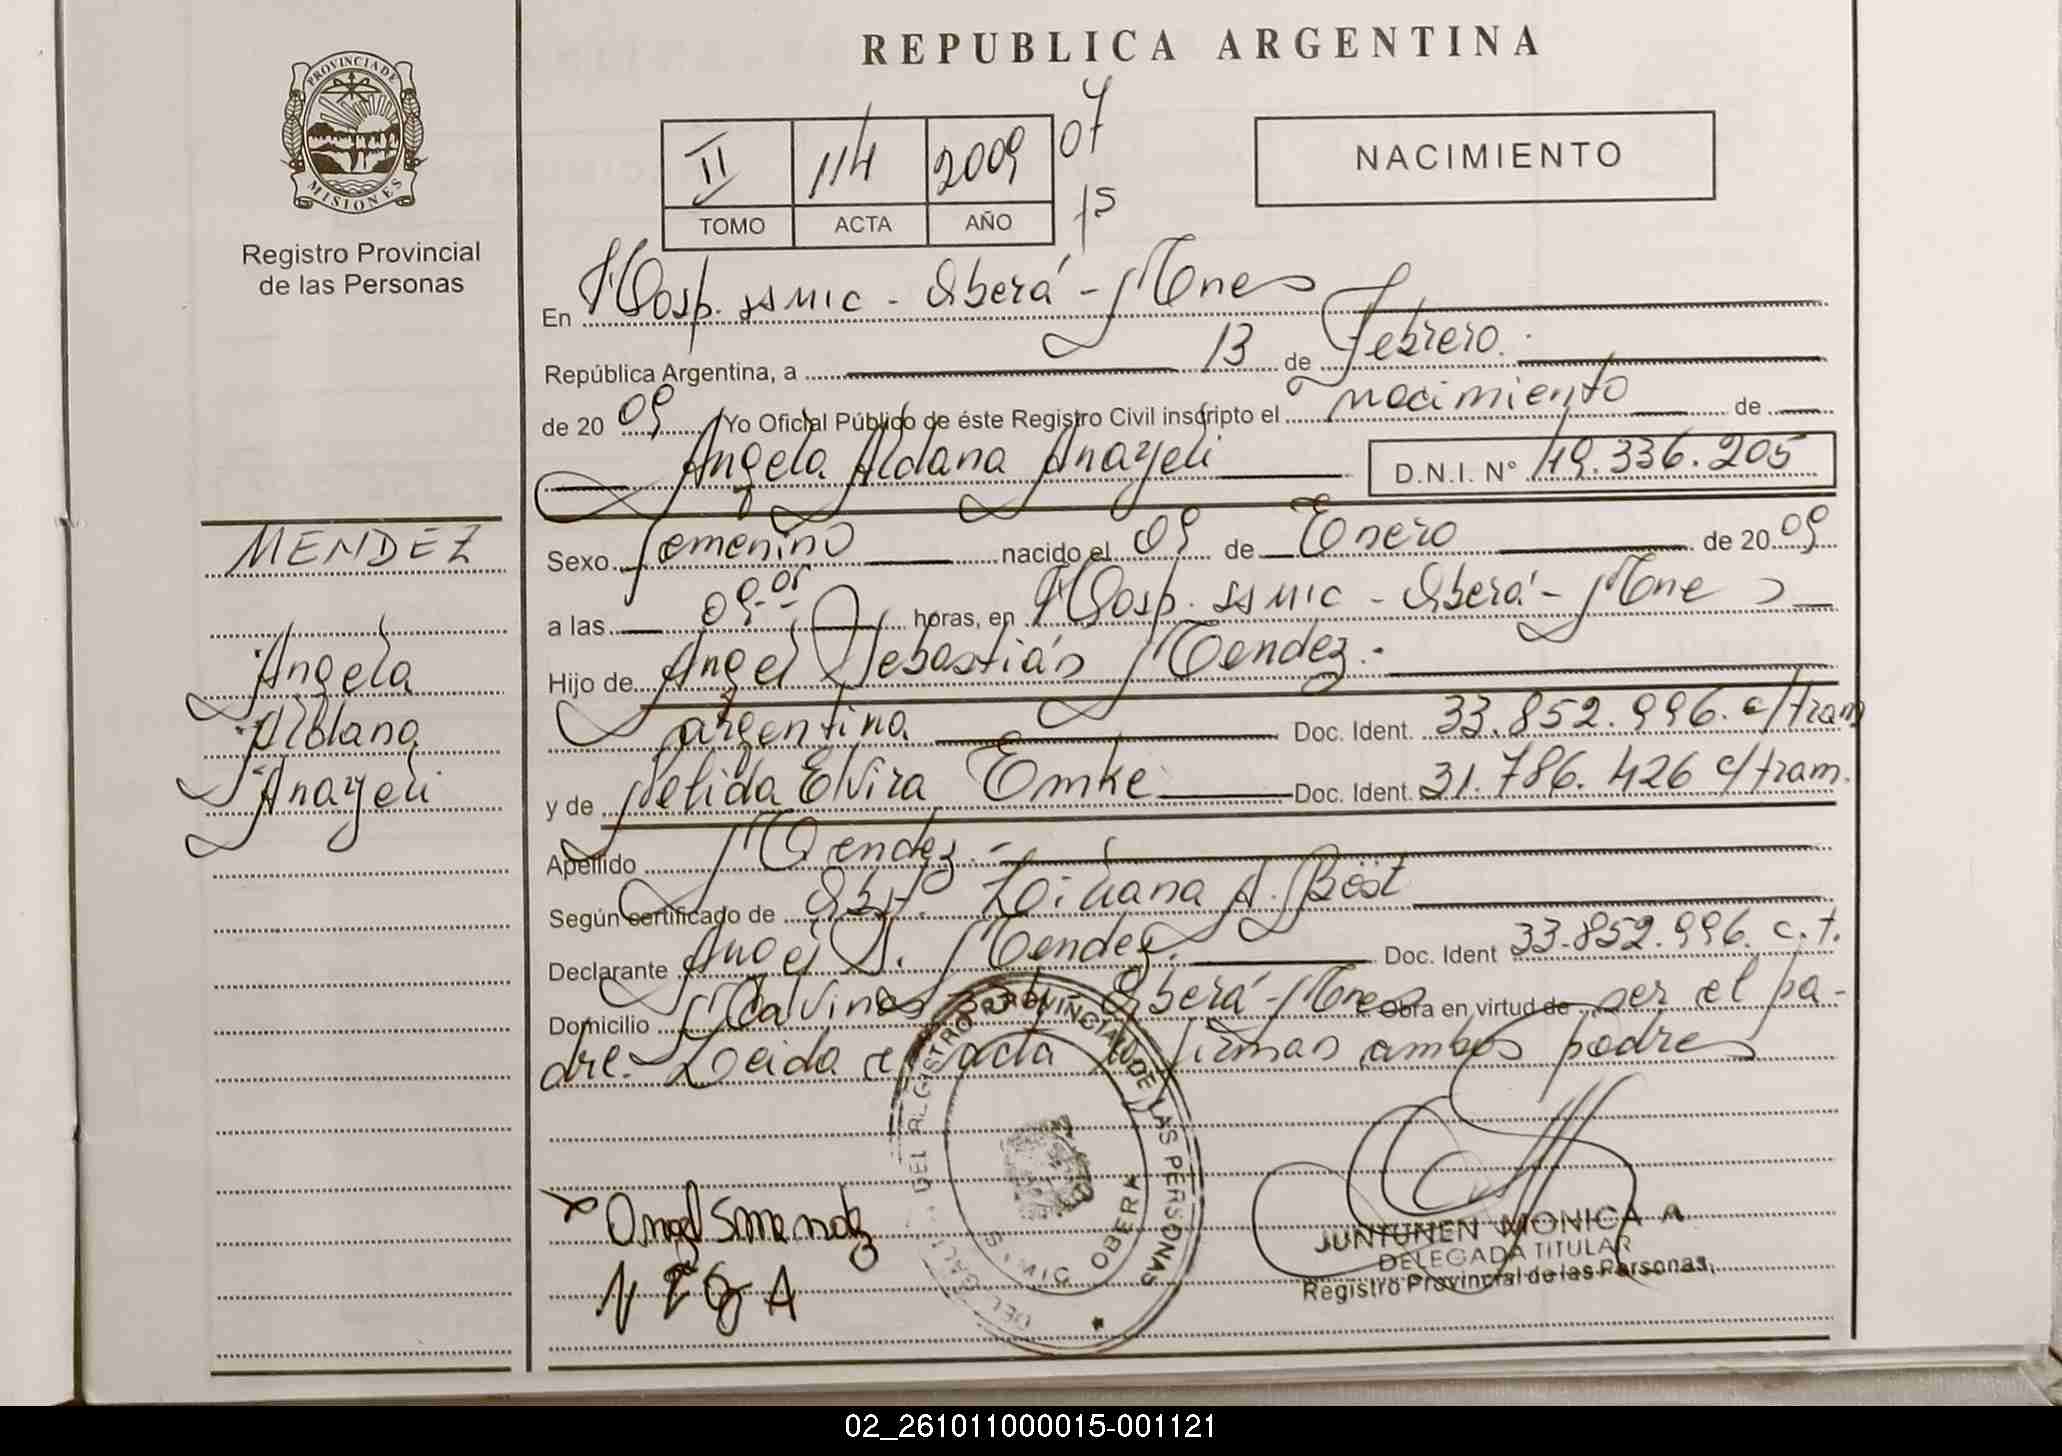 REPUBLICA ARGENTINA
PROVINCIA DE
MISIONES
Registro Provincial
de las Personas
II 114 2009
TOMO ACTA AÑO
07
15
NACIMIENTO
En Hosp. SAMIC - Oberá - Mnes
República Argentina, a 13 de Febrero.
de 20 09 Yo Oficial Público de éste Registro Civil inscripto el nacimiento de
Angela Aldana Anayeli D.N.I. Nº 49.336.205
MENDEZ
Angela
Aldana
Anayeli
Sexo Femenino nacido el 09 de Enero de 20 09
a las 09-05 horas, en Hosp. SAMIC - Oberá - Mnes
Hijo de Angel Sebastián Mendez.-
argentina Doc. Ident. 33.852.996. c/tram
y de Nelida Elvira Emke Doc. Ident. 31.786.426 c/tram.
Apellido Mendez.-
Según certificado de Obst. Liliana A. Böst
Declarante Angel S. Mendez. Doc. Ident 33.852.996. c.t.
Domicilio Malvinas Oberá - Mnes Obra en virtud de ser el pa-
dre.- Leida el acta firman ambos padres
DEL REGISTRO PROVINCIAL DE LAS PERSONAS
OBERA
Angel S mendez
N E A
JUNTUNEN MONICA A
DELEGADA TITULAR
Registro Provincial de las Personas,
02_261011000015-001121